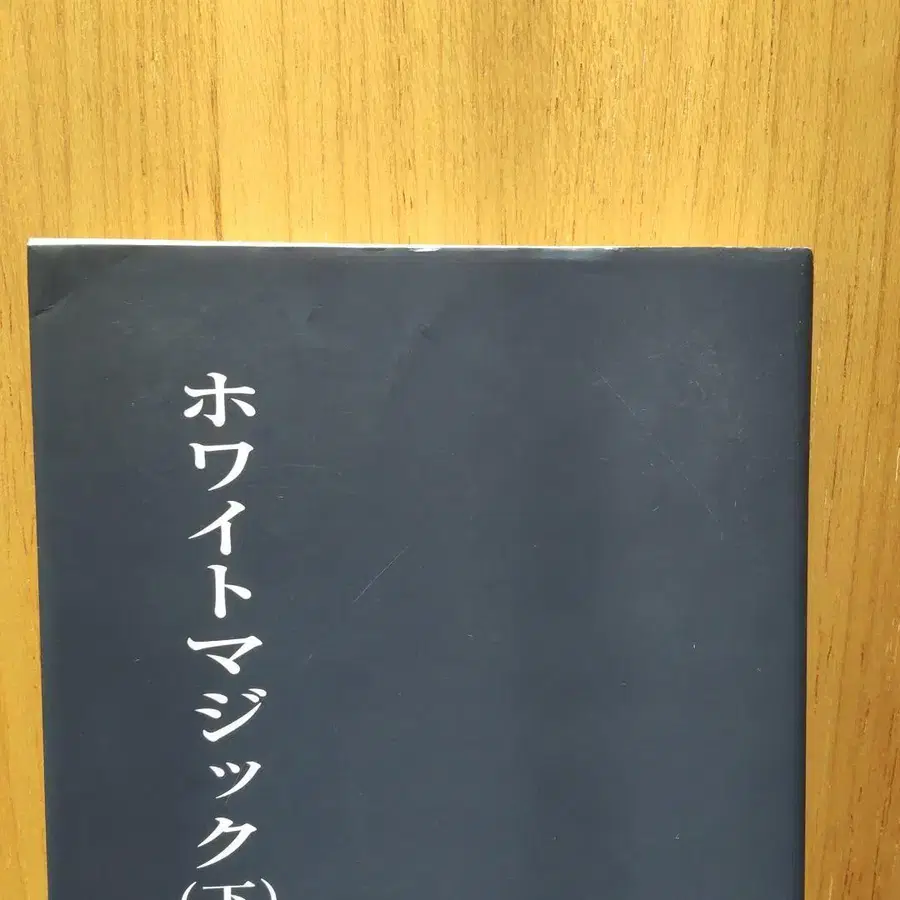 ホワイトマジック(下)